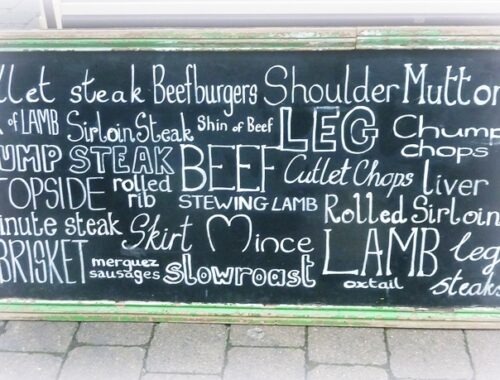 llet steak Beefburgers Shoulder Mutton
of LAMB Sirloin Steak Shin of Beef LEG Chump chops
UMP STEAK BEEF Cutlet Chops liver
TOPSIDE rolled rib STEWING LAMB Rolled Sirloin
inute steak Skirt Mince LAMB leg steaks
BRISKET merguez sausages slowroast oxtail